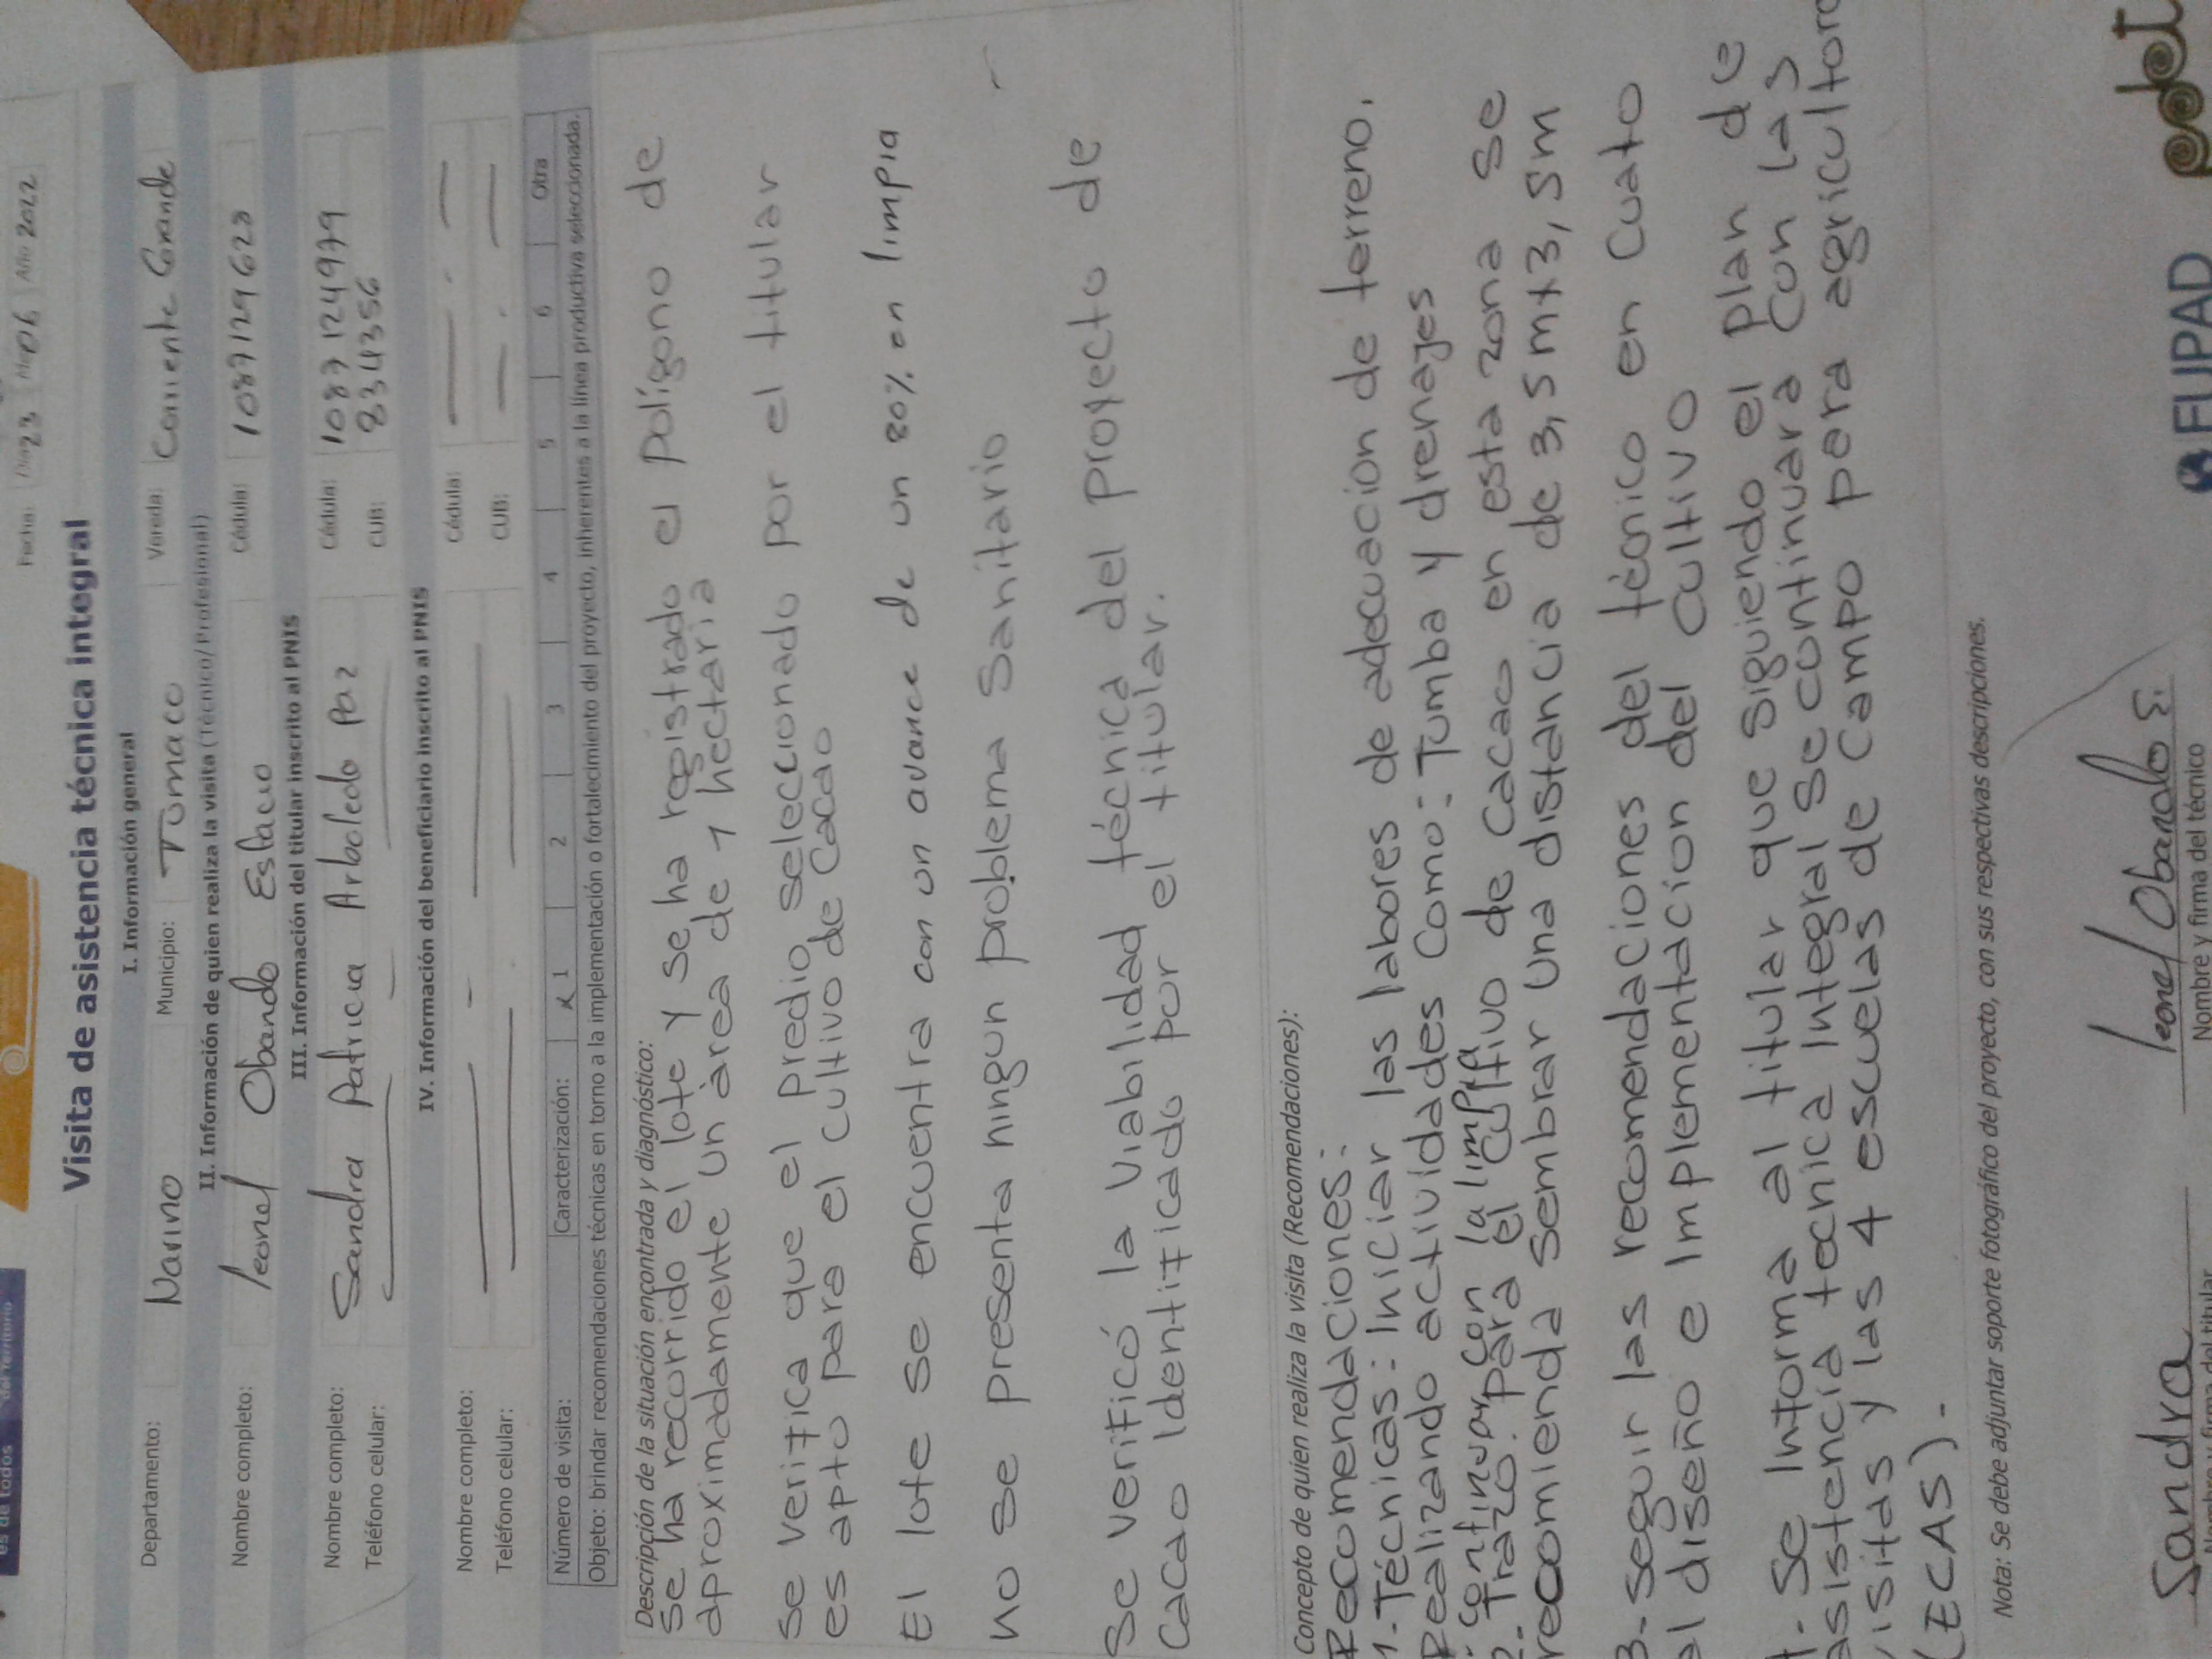 es de todos del Territorio
Fecha: Día 23 Mes 06 Año 2022
Visita de asistencia técnica integral
I. Información general
Departamento: Narino Municipio: Tumaco Vereda: Corriente Grande
II. Información de quien realiza la visita (Técnico/Profesional)
Nombre completo: leonel Obando Estacio Cédula: 1087129623
III. Información del titular inscrito al PNIS
Nombre completo: Sandra Patricia Arboleda Paz Cédula: 1087124979
Teléfono celular: CUB: 834356
IV. Información del beneficiario inscrito al PNIS
Nombre completo: Cédula:
Teléfono celular: CUB:
Número de visita: Caracterización: x 1 2 3 4 5 6 Otra
Objeto: brindar recomendaciones técnicas en torno a la implementación o fortalecimiento del proyecto, inherentes a la línea productiva seleccionada.
Descripción de la situación encontrada y diagnóstico:
se ha recorrido el lote y se ha registrado el polígono de
aproximadamente un área de 1 hectaria
se verifica que el predio seleccionado por el titular
es apto para el cultivo de cacao
El lote se encuentra con un avance de un 80% en limpia
no se presenta ningun problema sanitario
Se verificó la viabilidad técnica del proyecto de
cacao identificado por el titular.
Concepto de quien realiza la visita (Recomendaciones):
Recomendaciones:
1.-Técnicas: Iniciar las labores de adecuacion de terreno.
Realizando actividades como: Tumba y drenajes
- continuar con la limpia
2.- Trazo. para el cultivo de cacao en esta zona se
recomienda sembrar una distancia de 3,5mx3,5m
3.-seguir las recomendaciones del técnico en cuato
al diseño e implementacion del cultivo
4.- Se informa al titular que siguiendo el plan de
asistencia tecnica integral se continuara con las
visitas y las 4 escuelas de campo para agricultore
(ECAS).-
Nota: Se debe adjuntar soporte fotográfico del proyecto, con sus respectivas descripciones.
Sandra leonel Obando E.
Nombre y firma del titular Nombre y firma del técnico
FUPAD pdet